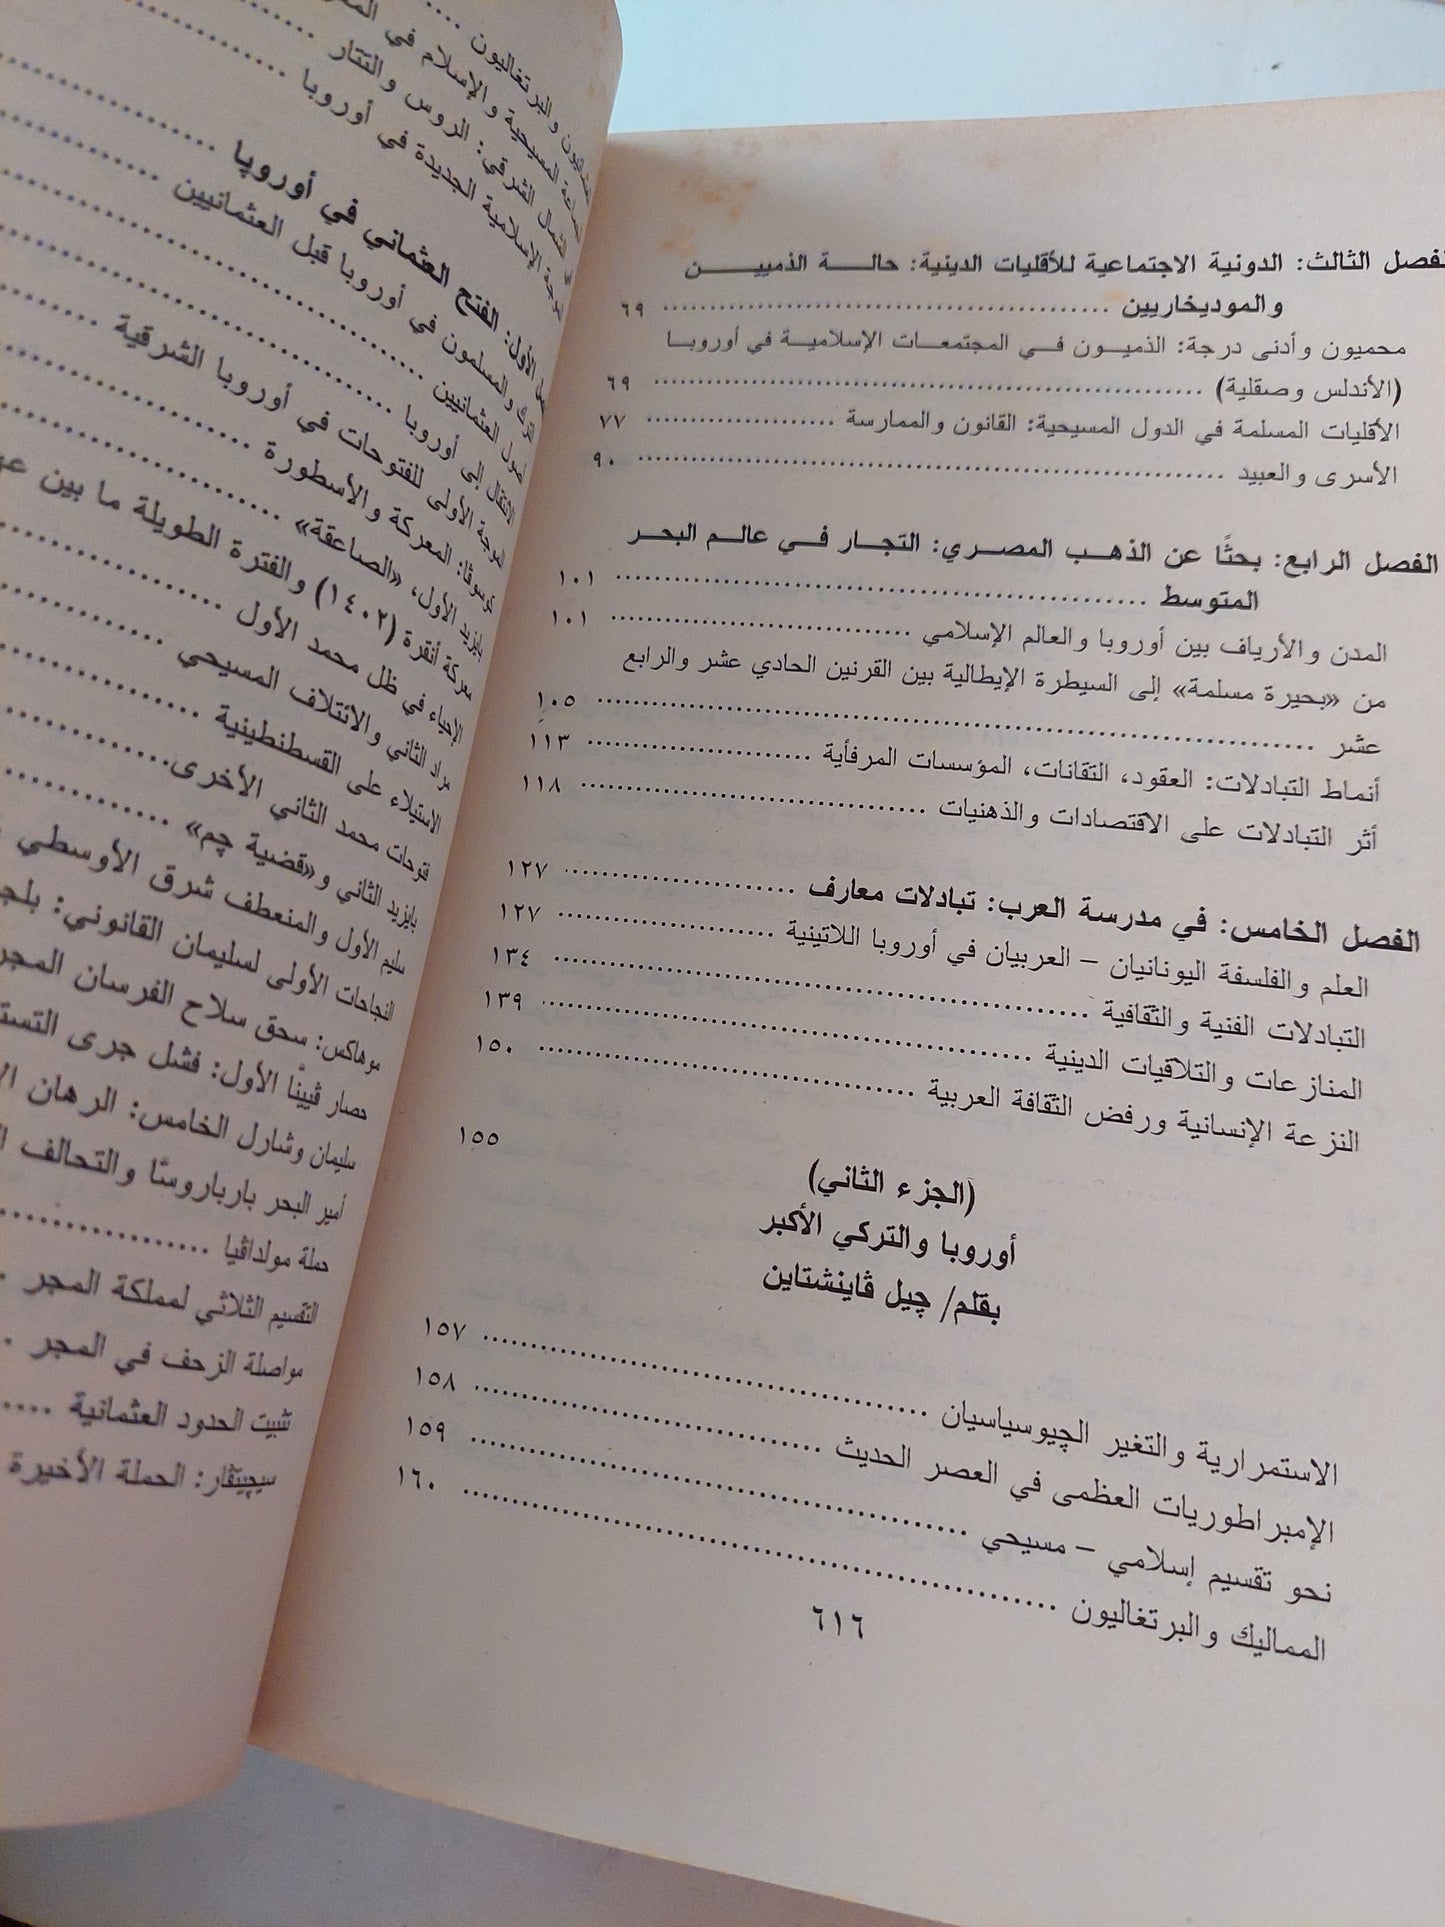 الفصل الثالث: الدونية الاجتماعية للأقليات الدينية: حالة الذميين
والموديخاريين ........ ٦٩
محميون وأدنى درجة: الذميون في المجتمعات الإسلامية في أوروبا
(الأندلس وصقلية) ........ ٦٩
الأقليات المسلمة في الدول المسيحية: القانون والممارسة ........ ٧٧
الأسرى والعبيد ........ ٩٠
الفصل الرابع: بحثًا عن الذهب المصري: التجار في عالم البحر
المتوسط ........ ١٠١
المدن والأرياف بين أوروبا والعالم الإسلامي ........ ١٠١
من «بحيرة مسلمة» إلى السيطرة الإيطالية بين القرنين الحادي عشر والرابع
عشر ........ ١٠٥
أنماط التبادلات: العقود، التقانات، المؤسسات المرفأية ........ ١١٣
أثر التبادلات على الاقتصادات والذهنيات ........ ١١٨
الفصل الخامس: في مدرسة العرب: تبادلات معارف ........ ١٢٧
العلم والفلسفة اليونانيان – العربيان في أوروبا اللاتينية ........ ١٢٧
التبادلات الفنية والثقافية ........ ١٣٤
المنازعات والتلاقيات الدينية ........ ١٣٩
النزعة الإنسانية ورفض الثقافة العربية ........ ١٥٠
١٥٥
(الجزء الثاني)
أوروبا والتركي الأكبر
بقلم/ چيل ڤاينشتاين
الاستمرارية والتغير الچيوسياسيان ........ ١٥٧
الإمبراطوريات العظمى في العصر الحديث ........ ١٥٨
نحو تقسيم إسلامي – مسيحي ........ ١٥٩
المماليك والبرتغاليون ........ ١٦٠
٦١٦
والبرتغاليون ........
المسيحية والإسلام في
الشمال الشرقي: الروس والتتار ........
الإسلامية الجديدة في أوروبا ........
الأول: الفتح العثماني في أوروپا ........
الترك والمسلمون في أوروبا قبل العثمانيين ........
أصول العثمانيين ........
الانتقال إلى أوروبا ........
الموجة الأولى للفتوحات في أوروبا الشرقية ........
كوسوڤا: المعركة والأسطورة ........
بايزيد الأول، «الصاعقة» ........
معركة أنقرة (١٤٠٢) والفترة الطويلة ما بين
الإحياء في ظل محمد الأول ........
مراد الثاني والائتلاف المسيحي ........
الاستيلاء على القسطنطينية ........
فتوحات محمد الثاني الأخرى ........
بايزيد الثاني و«قضية چم» ........
سليم الأول والمنعطف شرق الأوسطي
النجاحات الأولى لسليمان القانوني:
موهاكس: سحق سلاح الفرسان
حصار ڤيينا الأول: فشل جرى
سليمان وشارل الخامس: الرهان
أمير البحر بارباروسا والتحالف
حملة مولداڤيا ........
التقسيم الثلاثي لمملكة المجر
مواصلة الزحف في المجر
تثبيت الحدود العثمانية ....
سيجيتڤار: الحملة الأخيرة